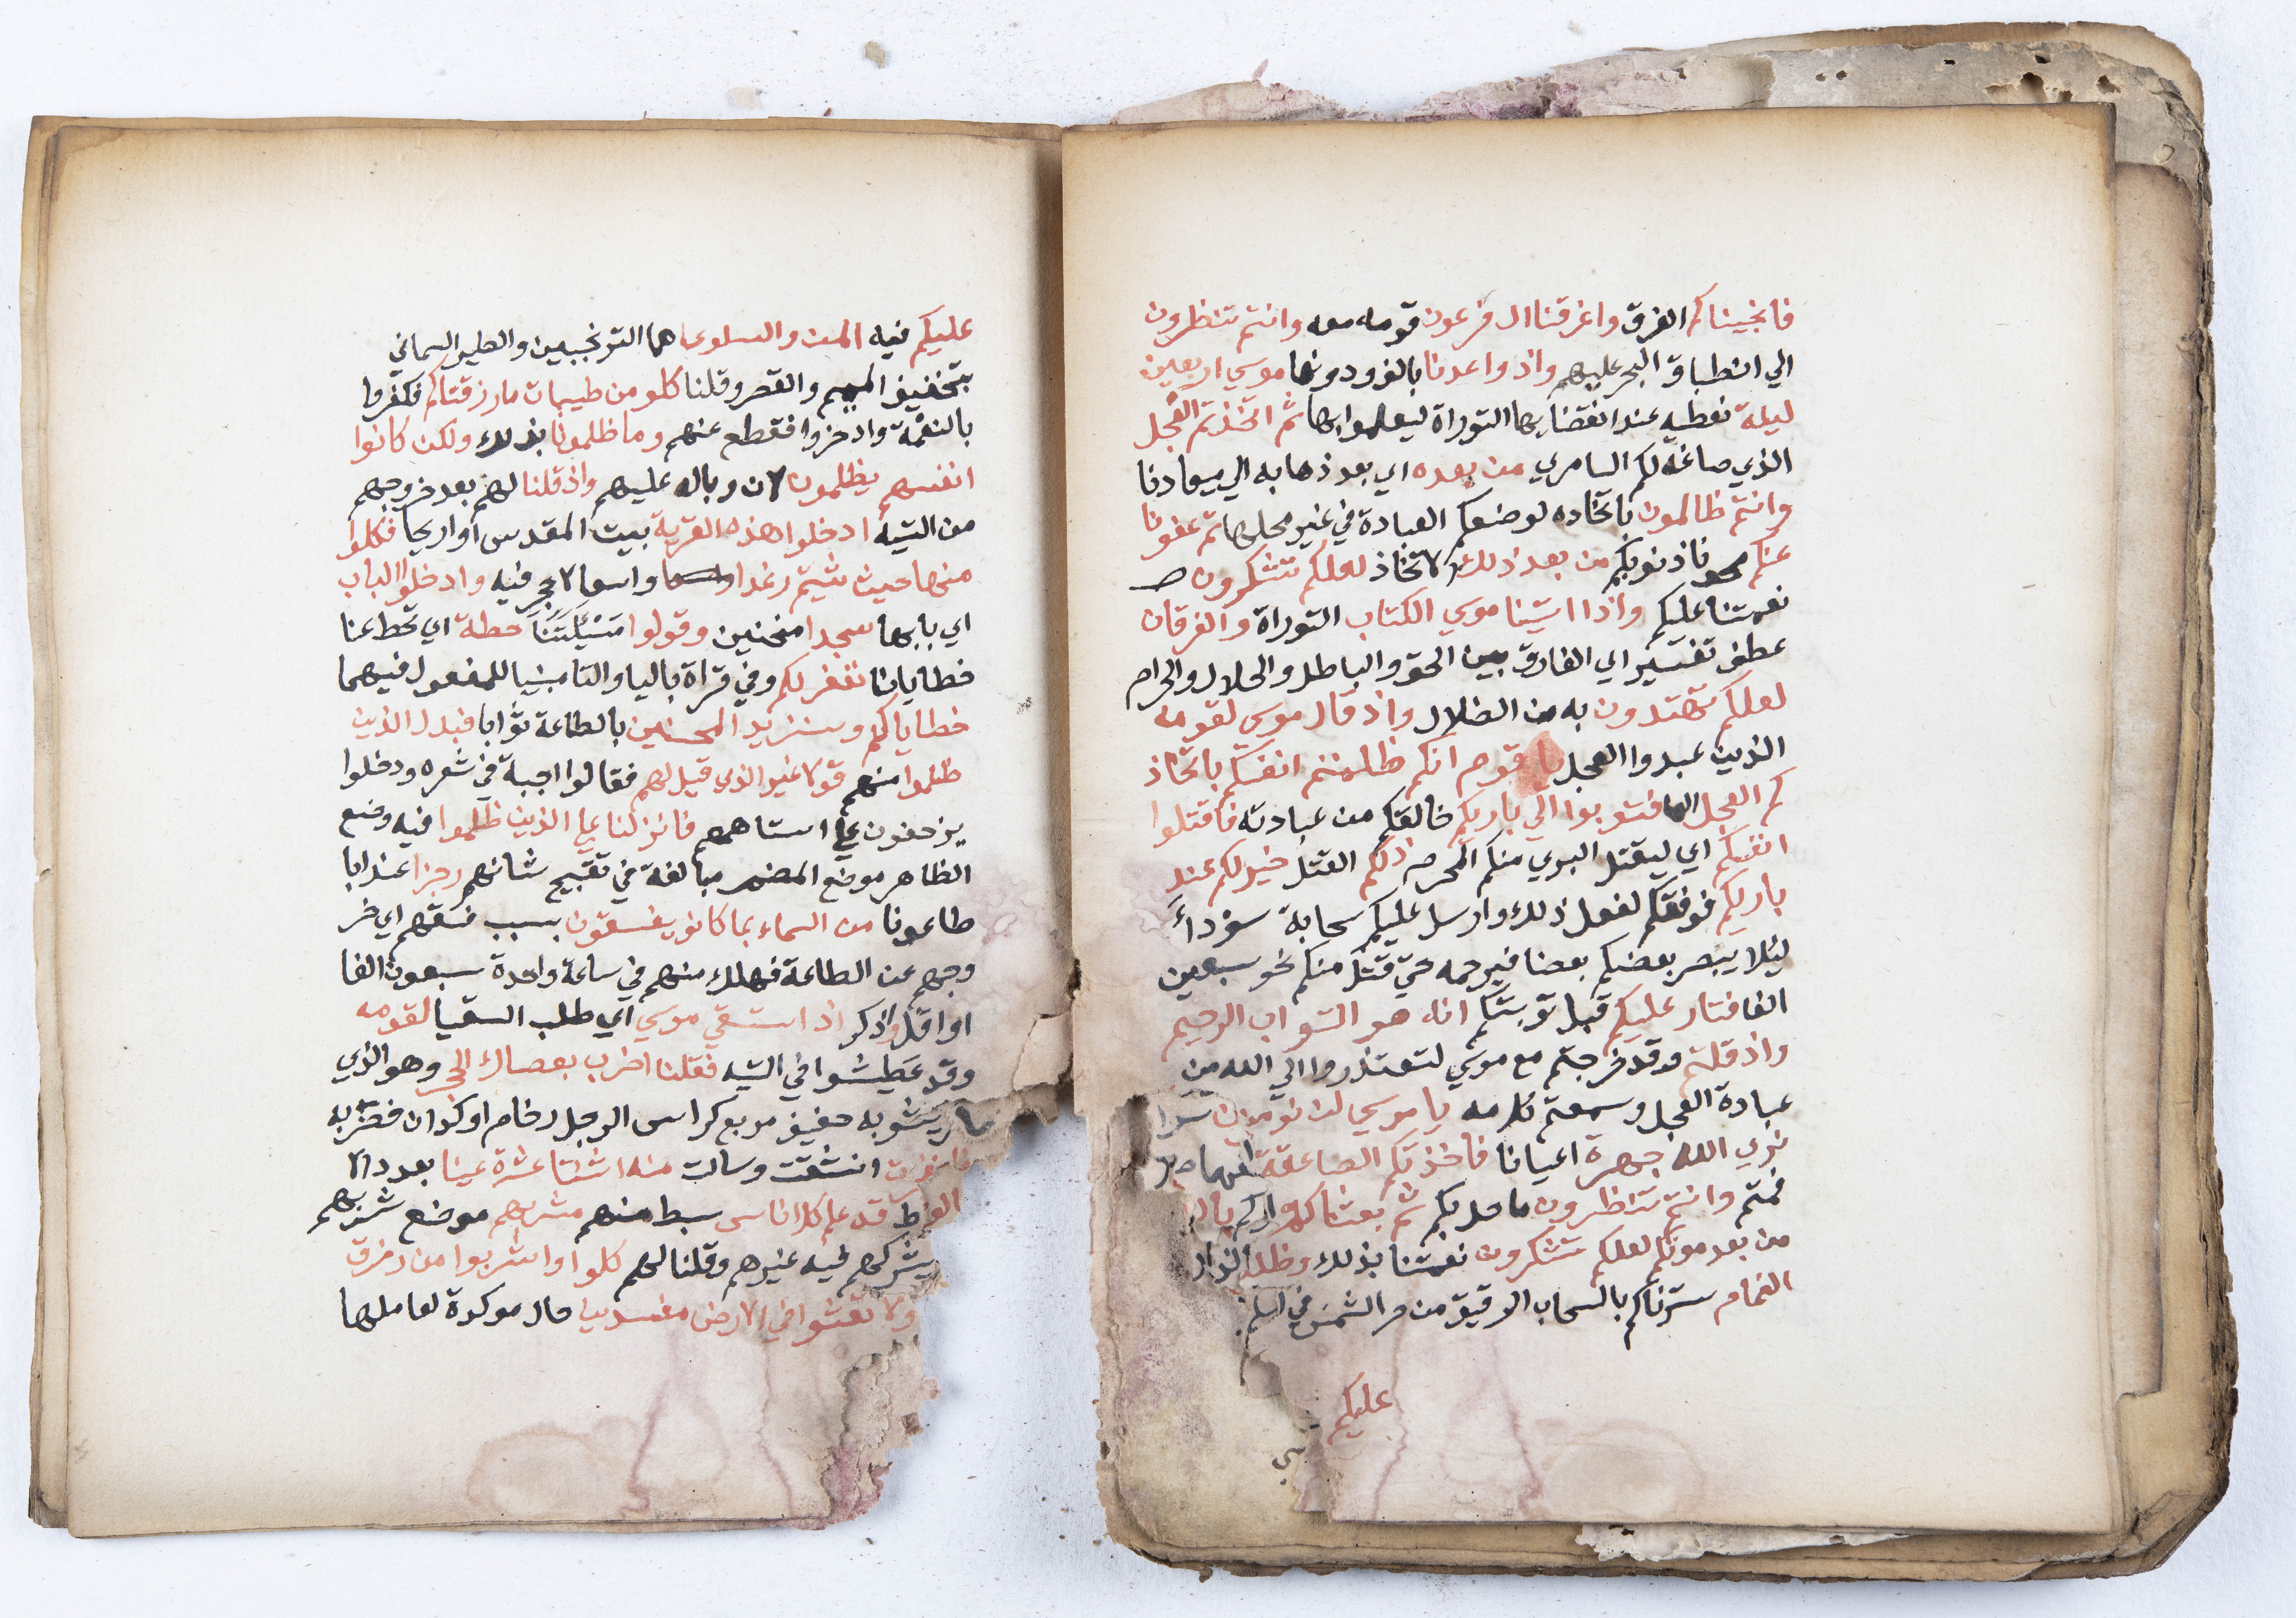 فانجيناكم الغرق واغرقنا ال فرعون قومه معه وانتم تنظرون
الي انطباق البحر عليهم واذ واعدنا بالف ودونها موسي اربعين
ليلة نعطيه عند انقضايها التوراة ليعلموا بها ثم اتخذتم العجل
الذي صاغه لكم السامري من بعده اي بعد ذهابه الي ميعادنا
وانتم ظالمون باتخاده لوضعكم العبادة في غير محلها ثم عفونا
عنكم محونا ذنوبكم من بعد ذلك الاتخاذ لعلكم تشكرون
نعمتنا عليكم واذا اتينا موسي الكتاب التوراة والفرقان
عطف تفسير اي الفارق بين الحق والباطل والحلال والحرام
لعلكم تهتدون به من الضلال واذ قال موسي لقومه
الذين عبدوا العجل يا قوم انكم ظلمتم انفسكم باتخاذ
كم العجل الها فتوبوا الي باريكم خالقكم من عبادته فاقتلوا
انفسكم اي ليقتل البري منكم المجرم ذلكم القتل خير لكم عند
باريكم فوفقكم لفعل ذلك وارسل عليكم سحابة سوداء
ليلا يبصر بعضكم بعضا فيرحمه حتي قتل منكم نحو سبعين
الفا فتاب عليكم قبل توبتكم انه هو التواب الرحيم
واذ قلتم وقد خرجتم مع موسي لتعتذروا الي الله من
عبادة العجل وسمعتم كلامه يا موسي لن نومن
نري الله جهرة اعيانا فاخذتكم الصاعقة
فمتم وانتم تنظرون ما حل بكم ثم بعثناكم
من بعد موتكم لعلكم تشكرون نعمتنا بذلك وظللنا
الغمام سترناكم بالسحاب الرقيق من حر الشمس في
عليكم
عليكم فيه المن والسلوي هما الترنجبين والطير السماني
بتخفيف الميم والقصر وقلنا كلو من طيبات ما رزقناكم فكفروا
بالنعمة وادخروا فقطع عنهم وما ظلمونا بذلك ولكن كانوا
انفسهم يظلمون لان وباله عليهم واذ قلنا لهم بعد خروجهم
من التيه ادخلوا هذه القرية بيت المقدس او اريحا فكلوا
منها حيث شيتم رغدا واسعا لا حجر فيه وادخلوا الباب
اي بابها سجدا منحنين وقولوا مسئلتنا حطة اي تحط عنا
خطايانا نغفر لكم وفي قراة باليا والتا مبنيا للمفعول فيهما
خطاياكم وسنزيد المحسنين بالطاعة ثوابا فبدل الذين
ظلموا منهم قولا غير الذي قيل لهم فقالوا حبة في شعره ودخلوا
يزحفون علي استاههم فانزلنا علي الذين ظلموا فيه وضع
الظاهر موضع المضمر مبالغة في تقبيح شانهم رجزا عذابا
طاعونا من السماء بما كانو يفسقون بسبب فسقهم اي خر
وجهم عن الطاعة فهلك منهم في ساعة واحدة سبعون الفا
او اقل واذكر اذ استسقي موسي اي طلب السقيا لقومه
وقد عطشوا في التيه فقلنا اضرب بعصاك الحجر وهو الذي
بثوبه خفيف مربع كراس الرجل رخام او كذان فضربه
انشقت وسالت منه اثنتا عشرة عينا بعدد الا
قد علم كل اناس سبط منهم مشربهم موضع شربهم
يشركهم فيه غيرهم وقلنا لهم كلوا واشربوا من رزق
ولا تعثوا في الارض مفسدين حال موكدة لعاملها